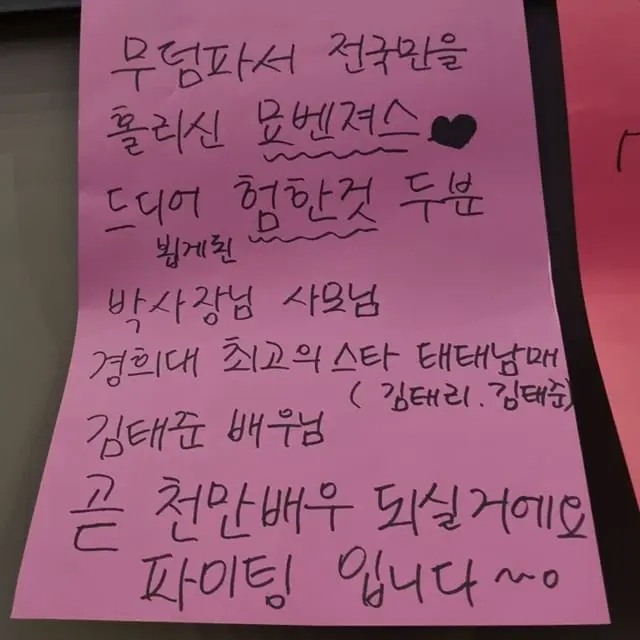 무덤파서 전국민을
홀리신 묘벤져스♥
드디어 험한것 두분
뵙게된
박사장님 사모님
경희대 최고의스타 태태남매
(김태리.김태준)
김태준 배우님
곧 천만배우 되실거에요
파이팅 입니다~~o